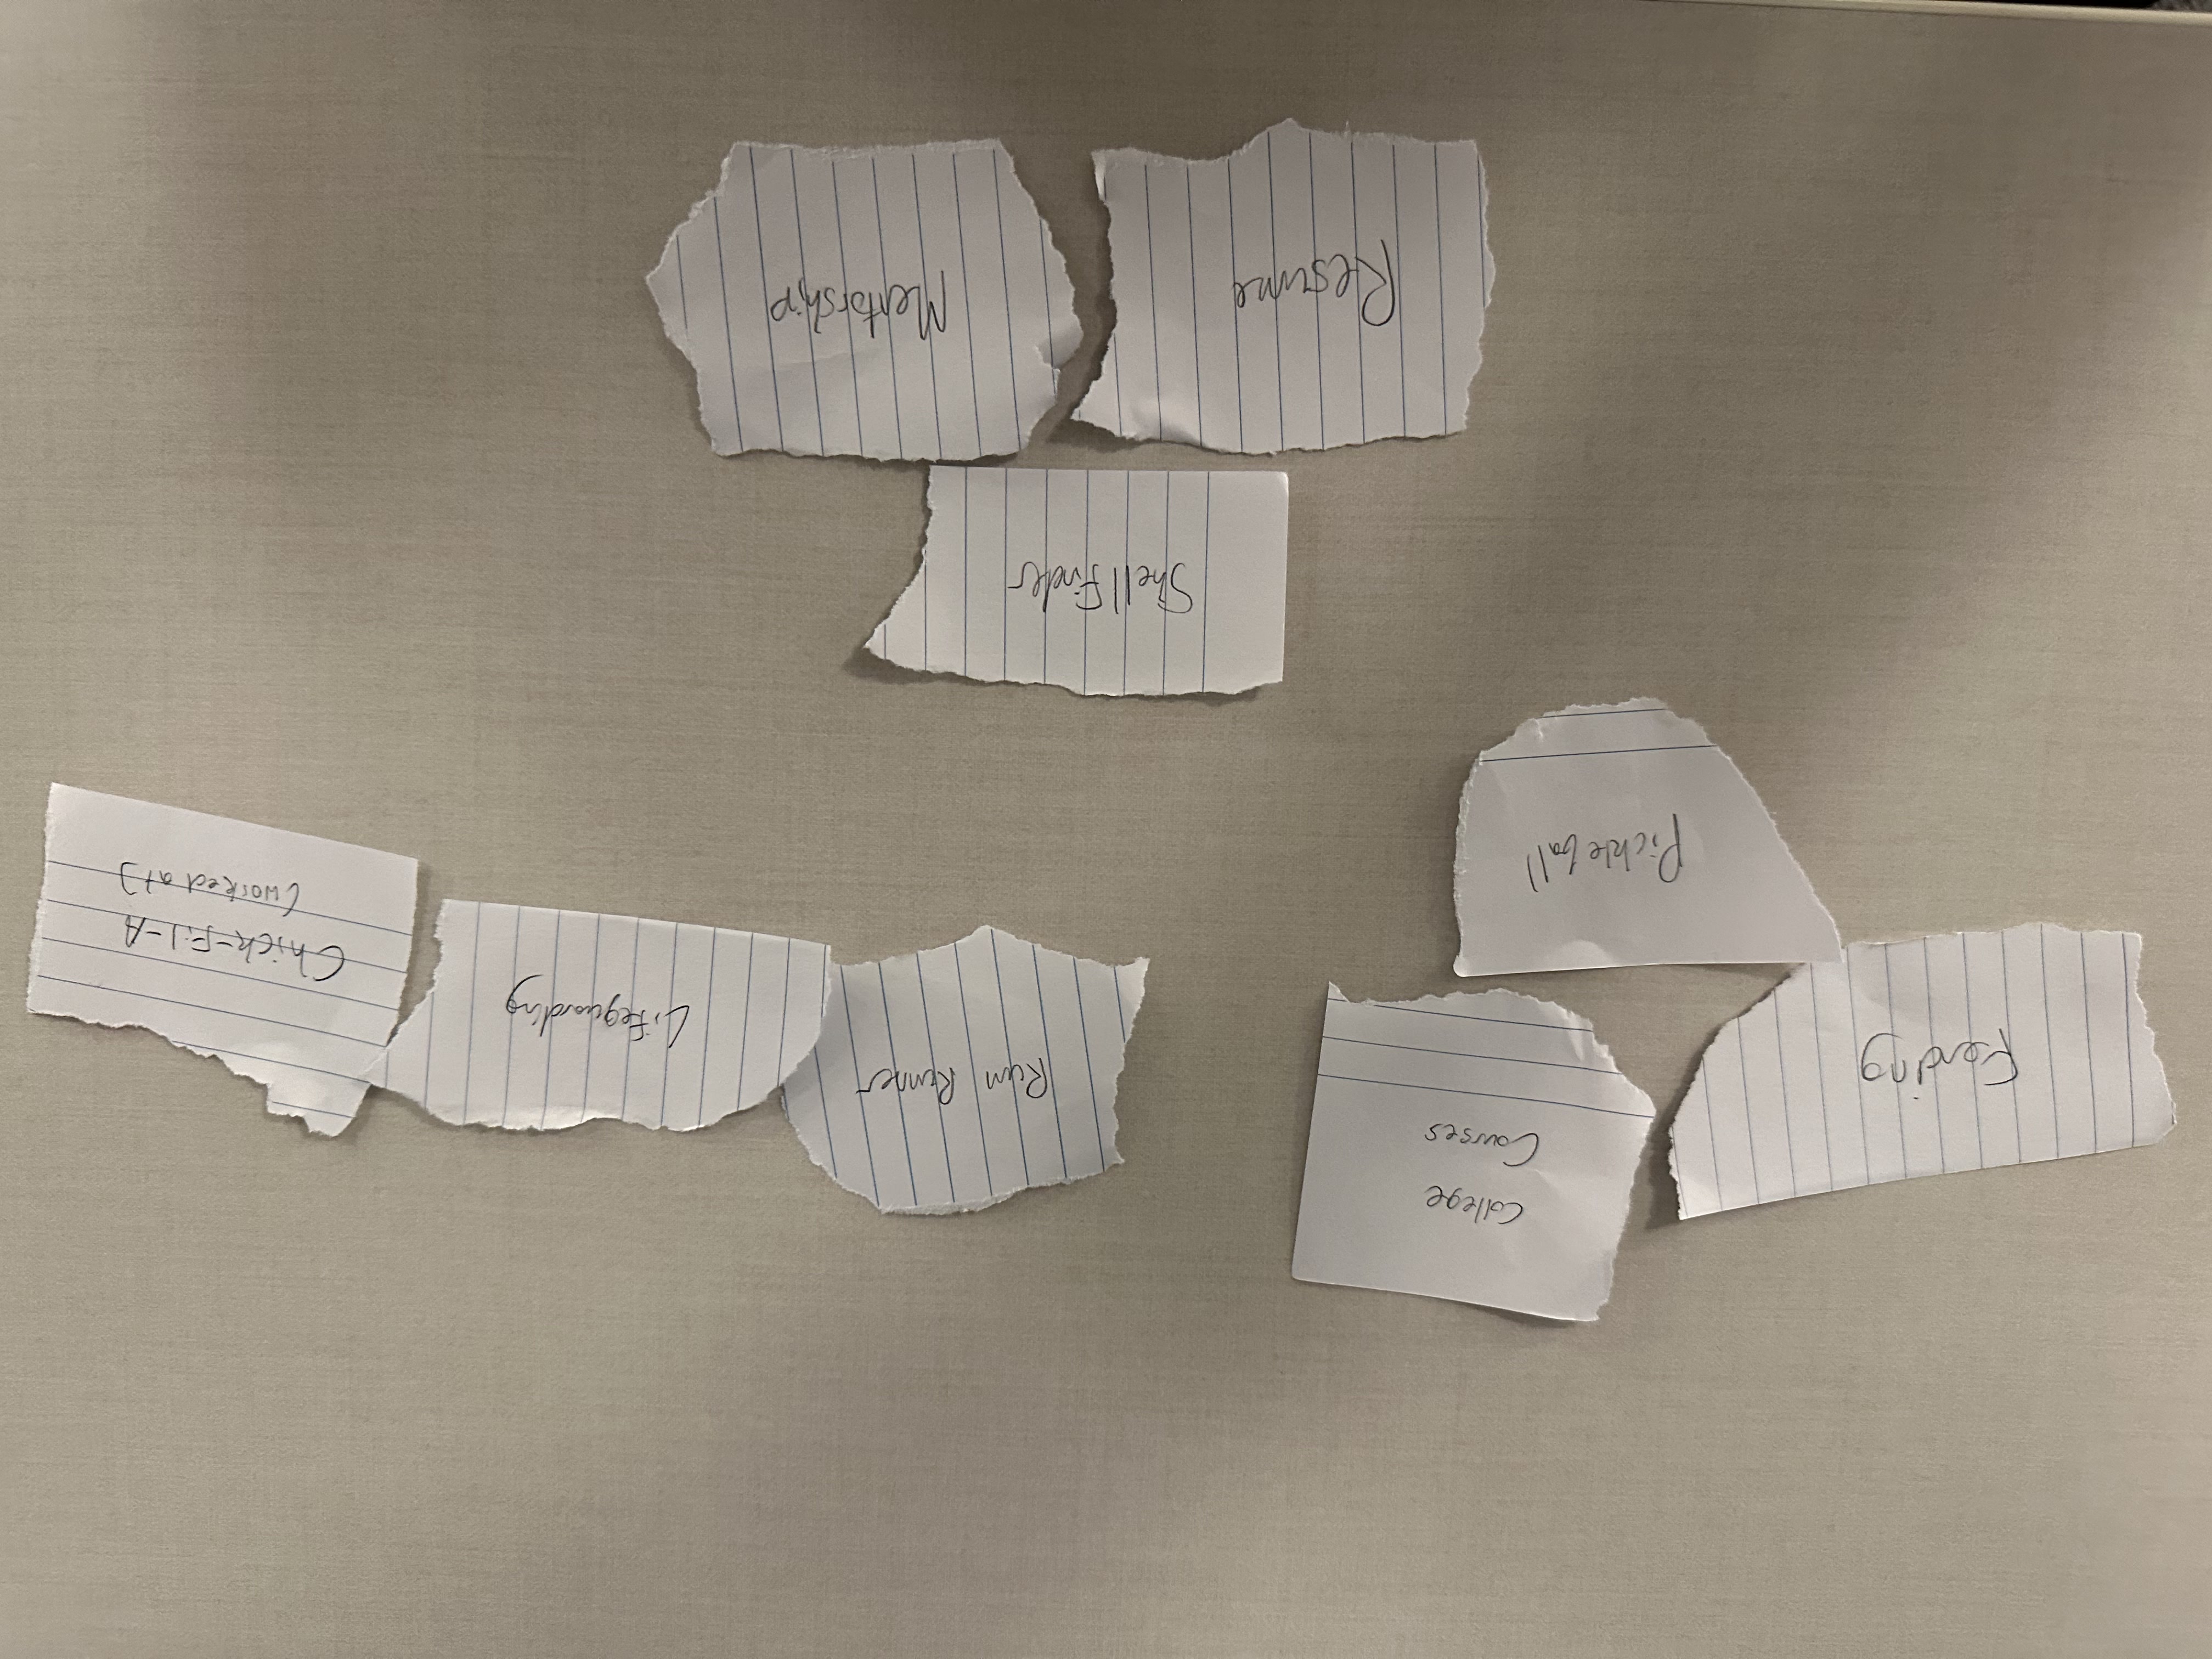 College
Courses
Fencing
Pickleball
Rum Runner
Lifeguarding
Chick-Fil-A
(worked at)
Shell Finder
Resume
Mentorship